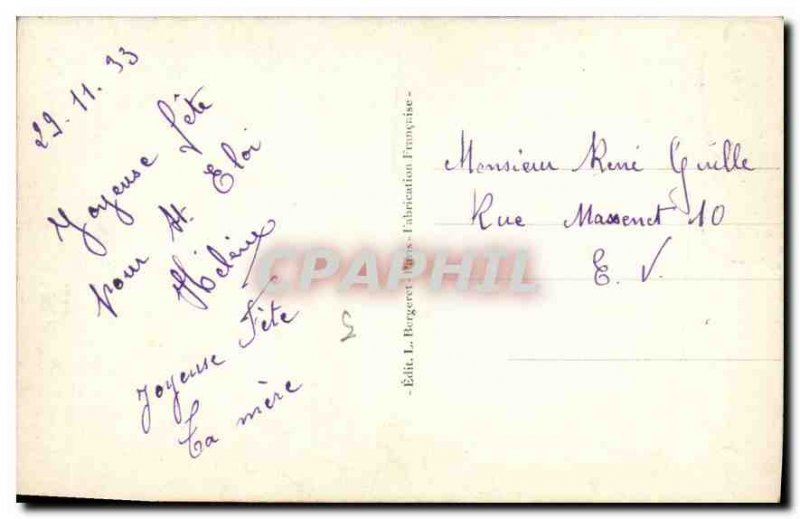 29.11.33
Joyeuse fête
pour St Eloi
Hélène
Joyeuse Fête
Ta mère
- Édit. L. Bergeret - Paris - Fabrication Française -
Monsieur René Guille
Rue Massenet 10
E. V.
CPAPHIL